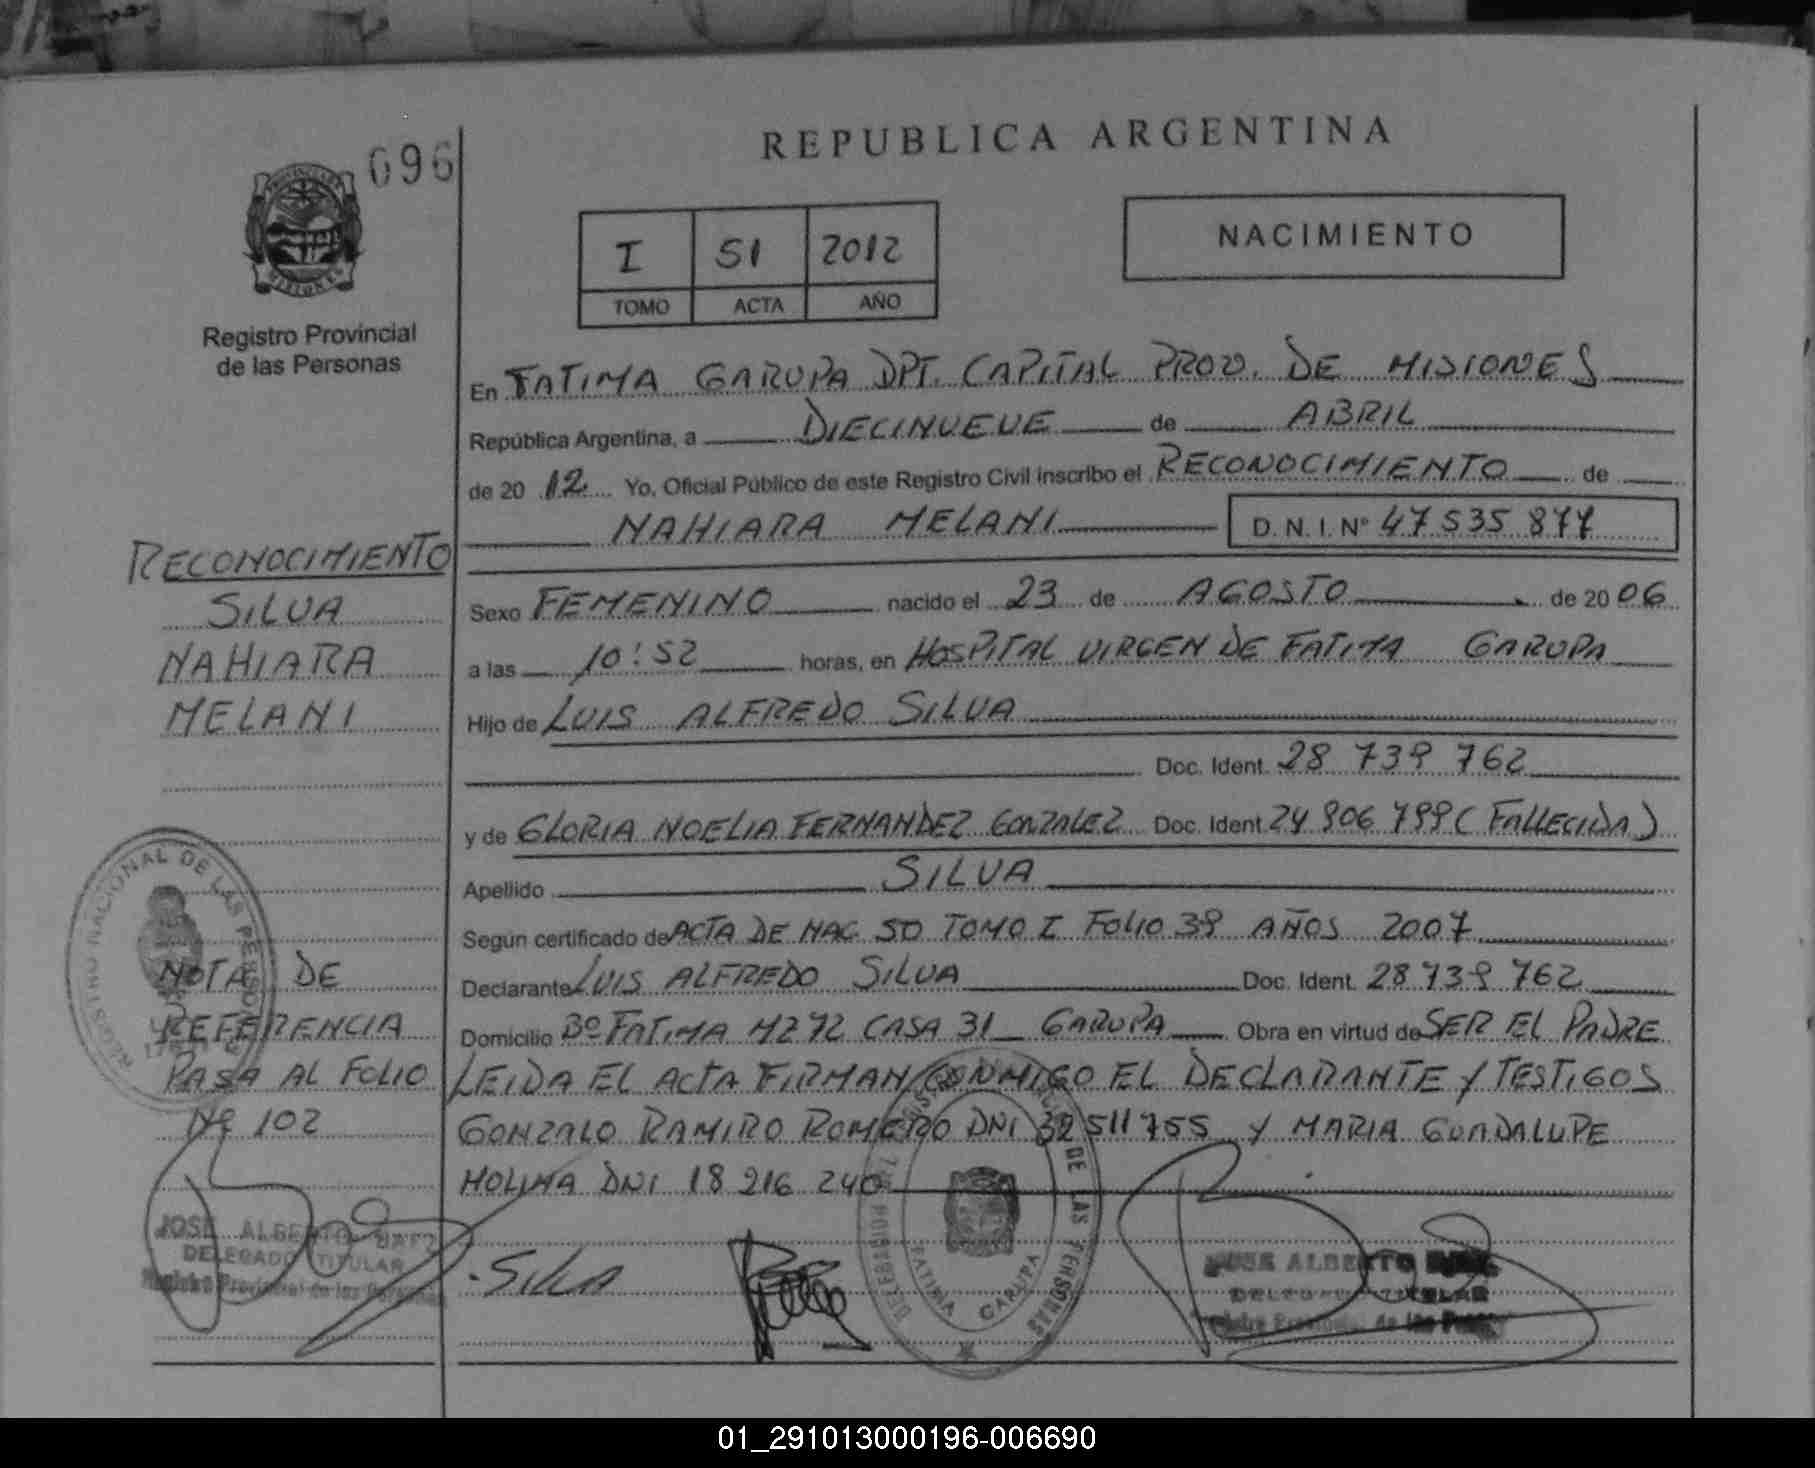 096
REPUBLICA ARGENTINA
I 51 2012
TOMO ACTA AÑO
NACIMIENTO
Registro Provincial
de las Personas
En FATIMA GARUPA DPT. CAPITAL PROV. DE MISIONES
República Argentina, a DIECINUEVE de ABRIL
de 20 12 Yo, Oficial Público de este Registro Civil inscribo el RECONOCIMIENTO de
NAHIARA MELANI D.N.I.Nº 47 535 877
Sexo FEMENINO nacido el 23 de AGOSTO de 20 06
a las 10:52 horas, en HOSPITAL VIRGEN DE FATIMA GARUPA
Hijo de LUIS ALFREDO SILVA
Doc. Ident. 28 739 762
y de GLORIA NOELIA FERNANDEZ GONZALEZ Doc. Ident. 24 906 799 (FALLECIDA)
Apellido SILVA
Según certificado de ACTA DE NAC 50 TOMO I FOLIO 39 AÑOS 2007
Declarante LUIS ALFREDO SILVA Doc. Ident. 28 739 762
Domicilio Bº FATIMA MZ 72 CASA 31 GARUPA Obra en virtud de SER EL PADRE
LEIDA EL ACTA FIRMAN CONMIGO EL DECLARANTE Y TESTIGOS
GONZALO RAMIRO ROMERO DNI 32 511 755 Y MARIA GUADALUPE
MOLINA DNI 18 216 240
RECONOCIMIENTO
SILVA
NAHIARA
MELANI
REGISTRO NACIONAL DE LAS PERSONAS
NOTA DE
REFERENCIA
PASA AL FOLIO
Nº 102
JOSE ALBERTO
DELEGADO TITULAR
Registro Provincial de las Personas
Silva
DE LAS PERSONAS
FATIMA GARUPA
JOSE ALBERTO
DELEGADO TITULAR
Registro Provincial de las
01_291013000196-006690